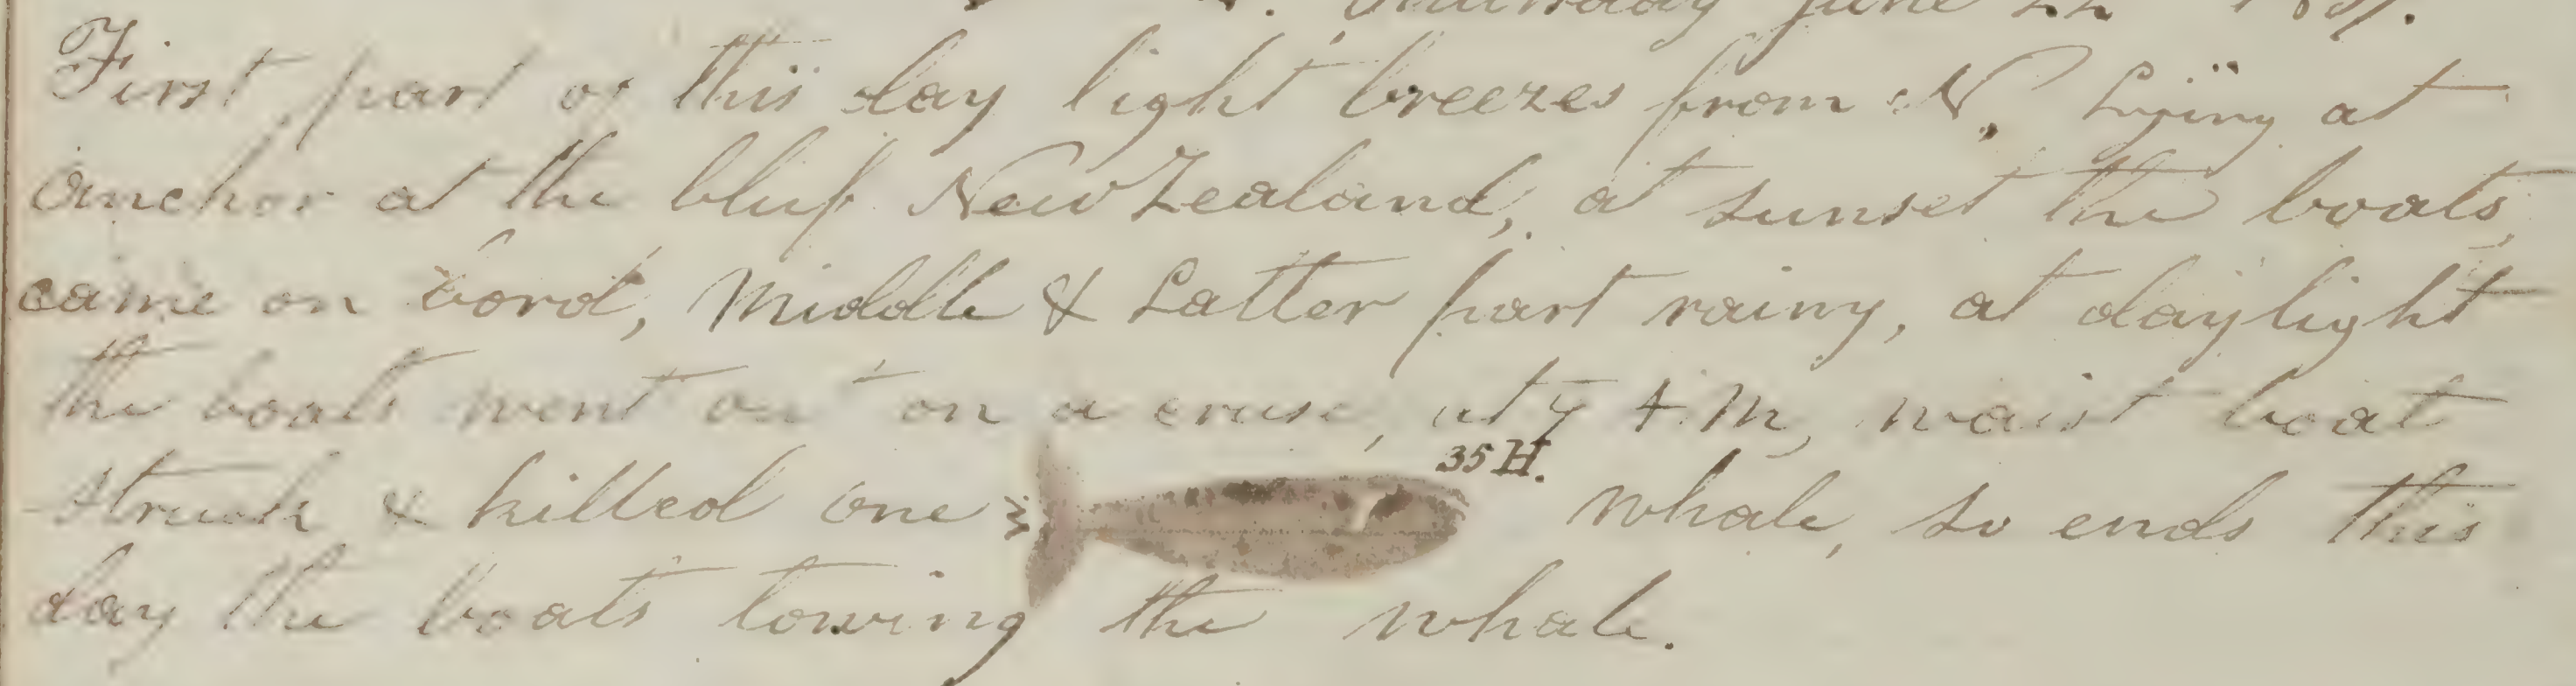 Thursday June 22
First part of this day light breezes from N, Lying at
anchor at the bluf New Zealand, at sunset the boats
came on bord, Middle & Latter part rainy, at daylight
the boats went out on a cruse, at A.M, waist boat
35 H.
struck & killed one whale, so ends this
day the boats towing the whale.